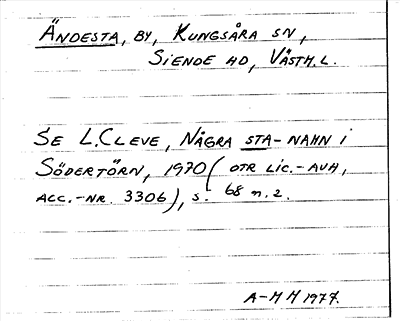 ÄNDESTA, BY, KUNGSÅRA SN,
SIENDE HD, VÄSTM.L.
SE L.CLEVE, NÅGRA STA-NAMN i
SÖDERTÖRN, 1970 (OTR LIC.-AVH,
ACC.-NR. 3306), s. 68 n. 2.
A-M H 1977.